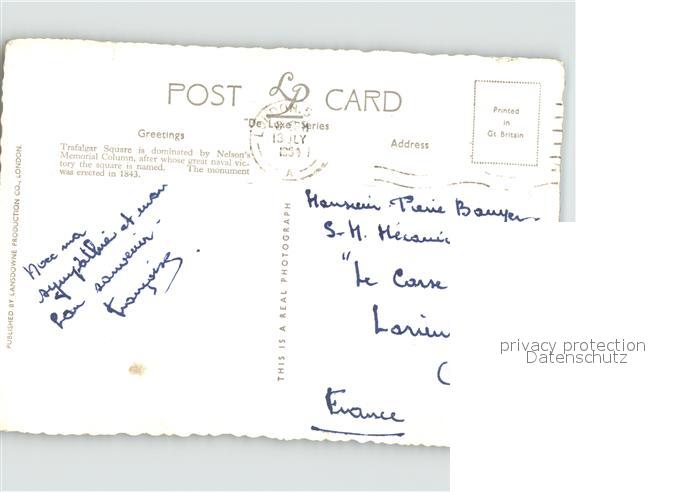 POST LP CARD
"De Luxe" Series
Greetings
Address
Printed
in
Gt Britain
LONDON
13 JLY
195
A
Trafalgar Square is dominated by Nelson's
Memorial Column, after whose great naval vic-
tory the square is named. The monument
was erected in 1843.
PUBLISHED BY LANSDOWNE PRODUCTION CO., LONDON.
THIS IS A REAL PHOTOGRAPH
ma
sympathie et mon
souvenir.
Françoise
Monsieur Pierre
S-M. Mécanic
"Le Corse
Lorien
(
France
privacy protection
Datenschutz